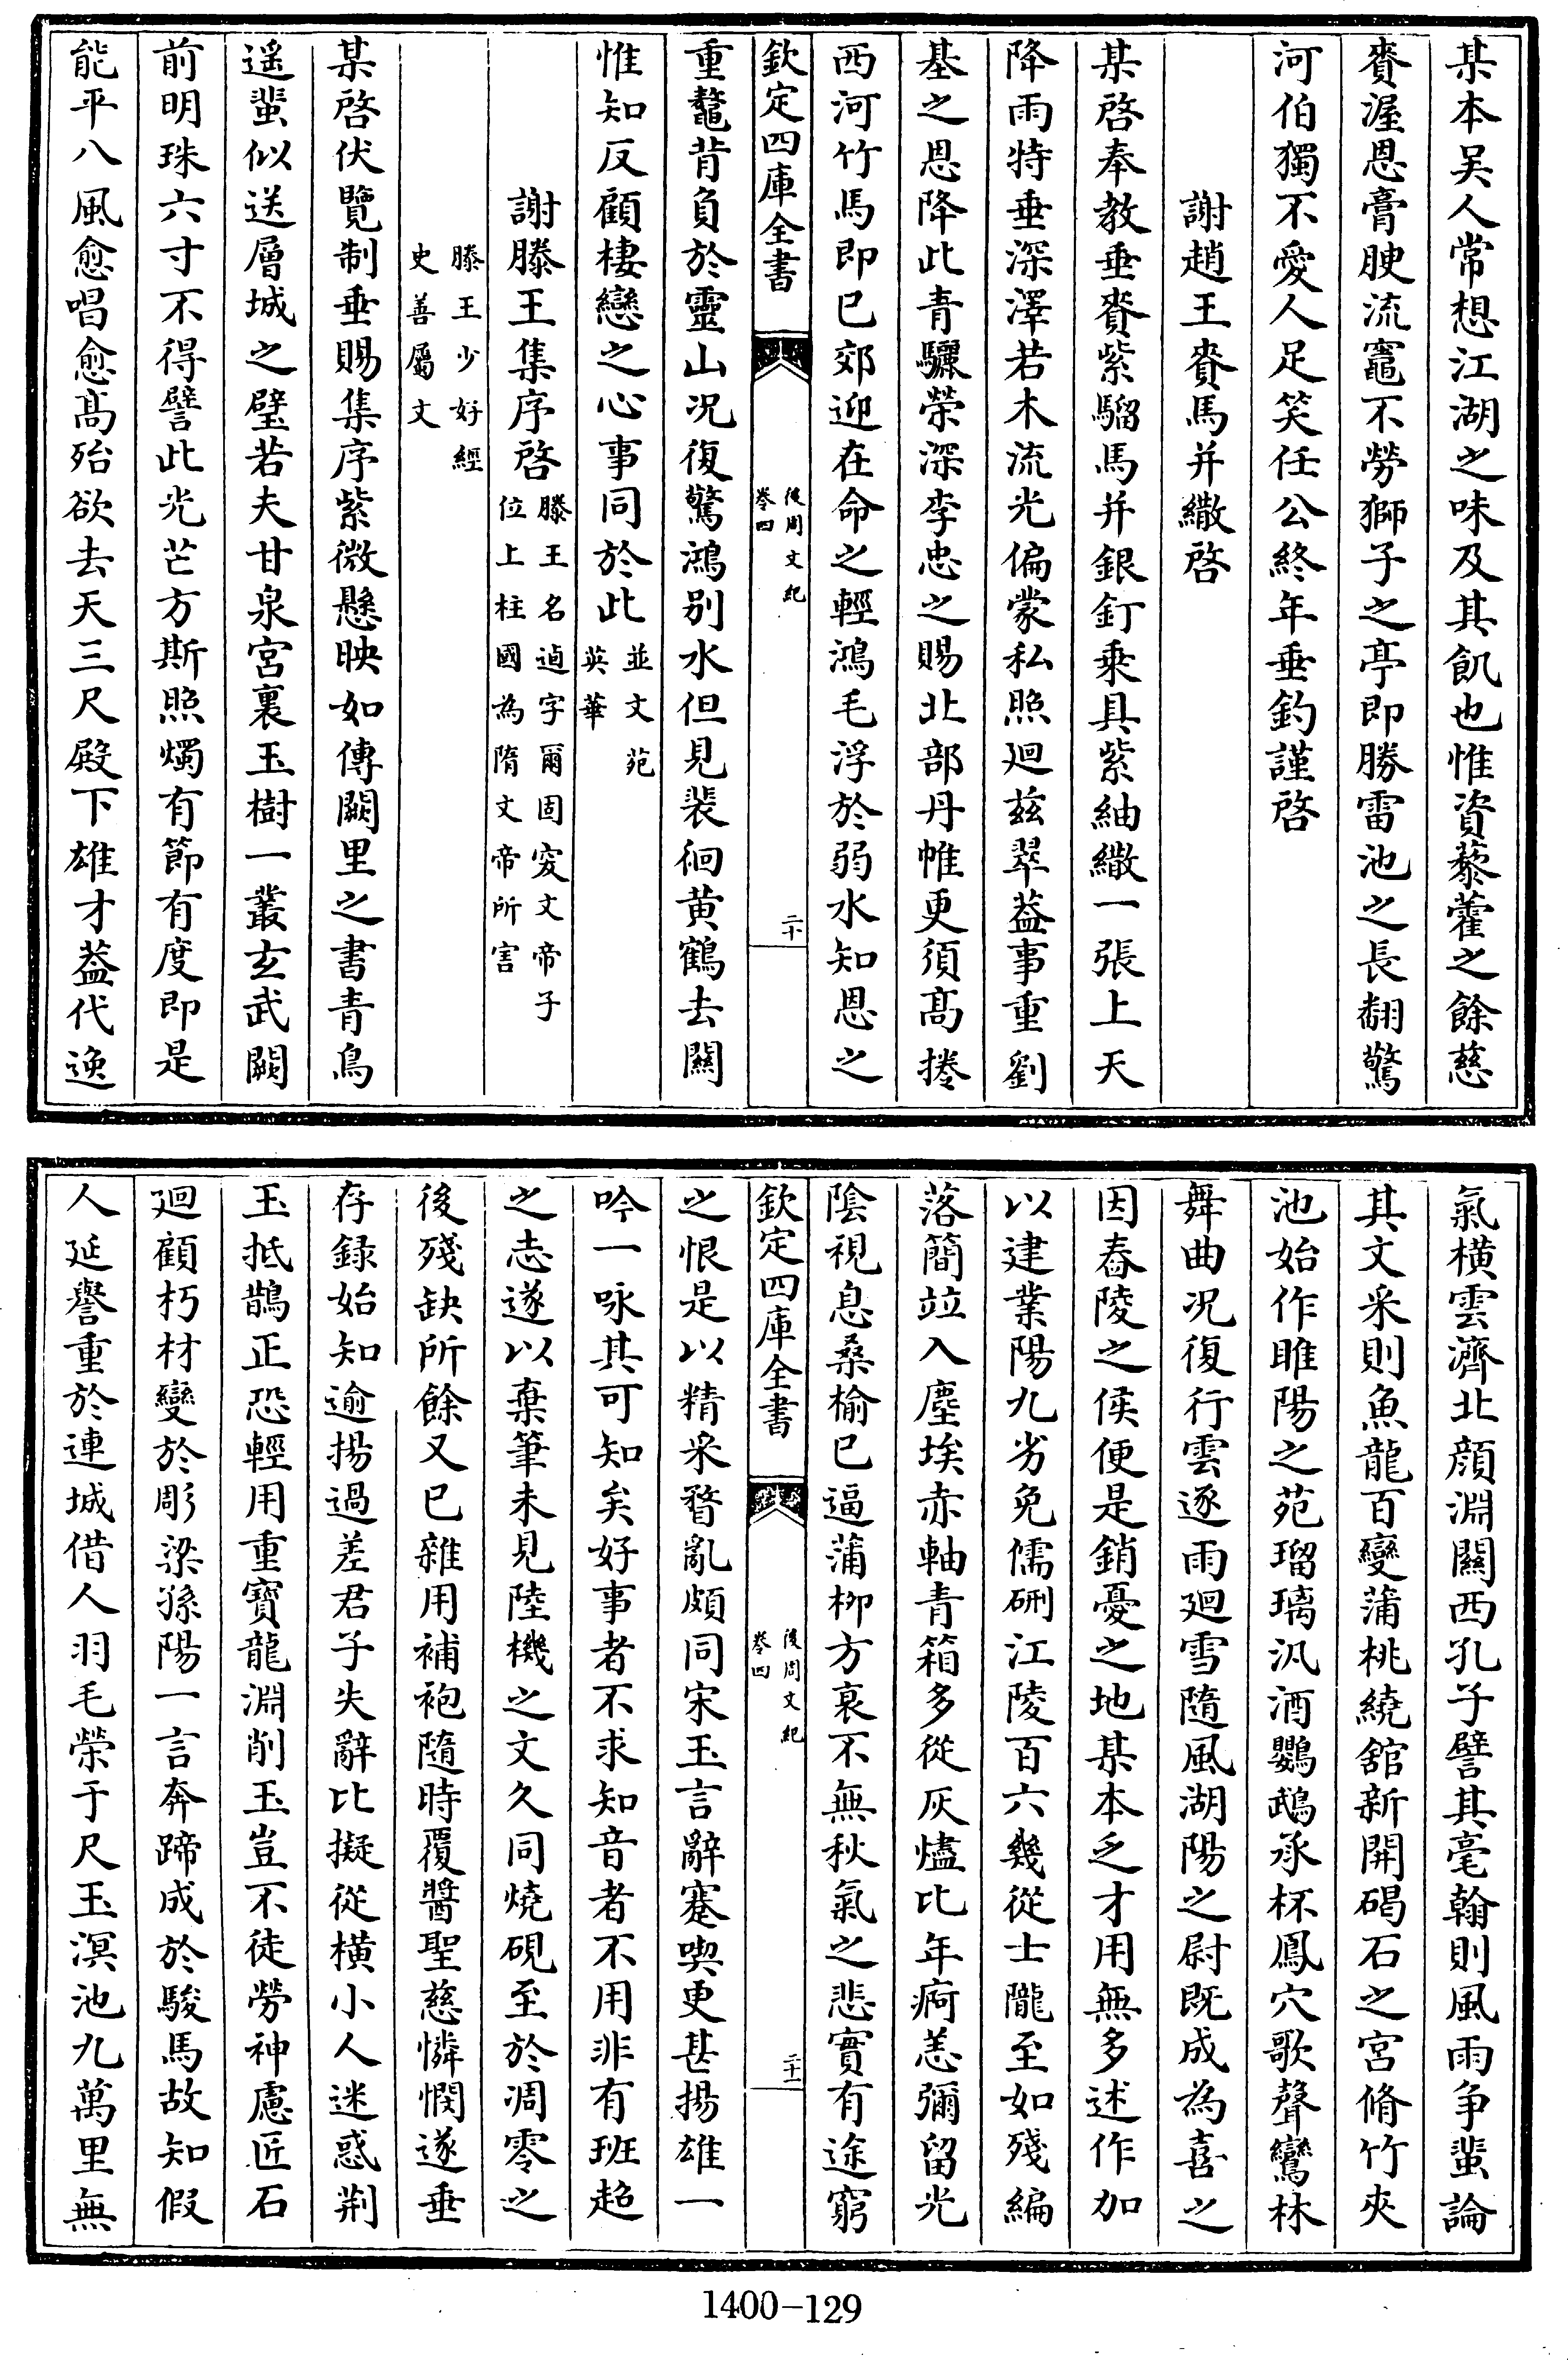 某本吴人常想江湖之味及其飢也惟資藜藿之餘慈
賚渥恩膏腴流竈不勞獅子之亭即勝雷池之長翻驚
河伯獨不愛人足笑任公終年垂釣謹啓
謝趙王賚馬并繖啓
某啓奉教垂賚紫騮馬并銀釘乗具紫紬繖一張上天
降雨特垂深澤若木流光偏蒙私照廻兹翠葢事重劉
基之恩降此青驪榮深李忠之賜北部丹帷更須髙捲
西河竹馬即已郊迎在命之輕鴻毛浮於弱水知恩之
欽定四庫全書
後周文紀
卷四
二十
重鼇背負於靈山况復驚鴻别水但見裴徊黄鶴去關
惟知反顧棲戀之心事同於此並文苑
英華
謝滕王集序啓滕王名逌字爾固㝔文帝子
位上柱國為隋文帝所害
滕王少好經
史善屬文
某啓伏覽制垂賜集序紫微懸映如傳闕里之書青鳥
遥蜚似送層城之璧若夫甘泉宮裏玉樹一叢玄武闕
前明珠六寸不得譬此光芒方斯照燭有節有度即是
能平八風愈唱愈髙殆欲去天三尺殿下雄才葢代逸
氣橫雲濟北顔淵關西孔子譬其毫翰則風雨争蜚論
其文采則魚龍百變蒲桃繞舘新開碣石之宮脩竹夾
池始作睢陽之苑瑠璃汎酒鸚鵡承杯鳳穴歌聲鸞林
舞曲况復行雲逐雨廻雪隨風湖陽之尉既成為喜之
因舂陵之侯便是銷憂之地某本乏才用無多述作加
以建業陽九劣免儒硎江陵百六幾從士隴至如殘編
落簡竝入塵埃赤軸青箱多從灰燼比年疴恙彌留光
陰視息桑榆已逼蒲柳方衰不無秋氣之悲實有途窮
欽定四庫全書
後周文紀
卷四
二十一
之恨是以精采瞀亂頗同宋玉言辭蹇喫更甚揚雄一
吟一咏其可知矣好事者不求知音者不用非有班超
之志遂以棄筆未見陸機之文久同燒硯至於凋零之
後殘缺所餘又已雜用補袍隨時覆醬聖慈憐憫遂垂
存録始知逾揚過差君子失辭比擬從橫小人迷惑荆
玉抵鵲正恐輕用重寶龍淵削玉豈不徒勞神慮匠石
廻顧朽材變於彫梁孫陽一言奔蹄成於駿馬故知假
人延譽重於連城借人羽毛榮于尺玉溟池九萬里無
1400-129